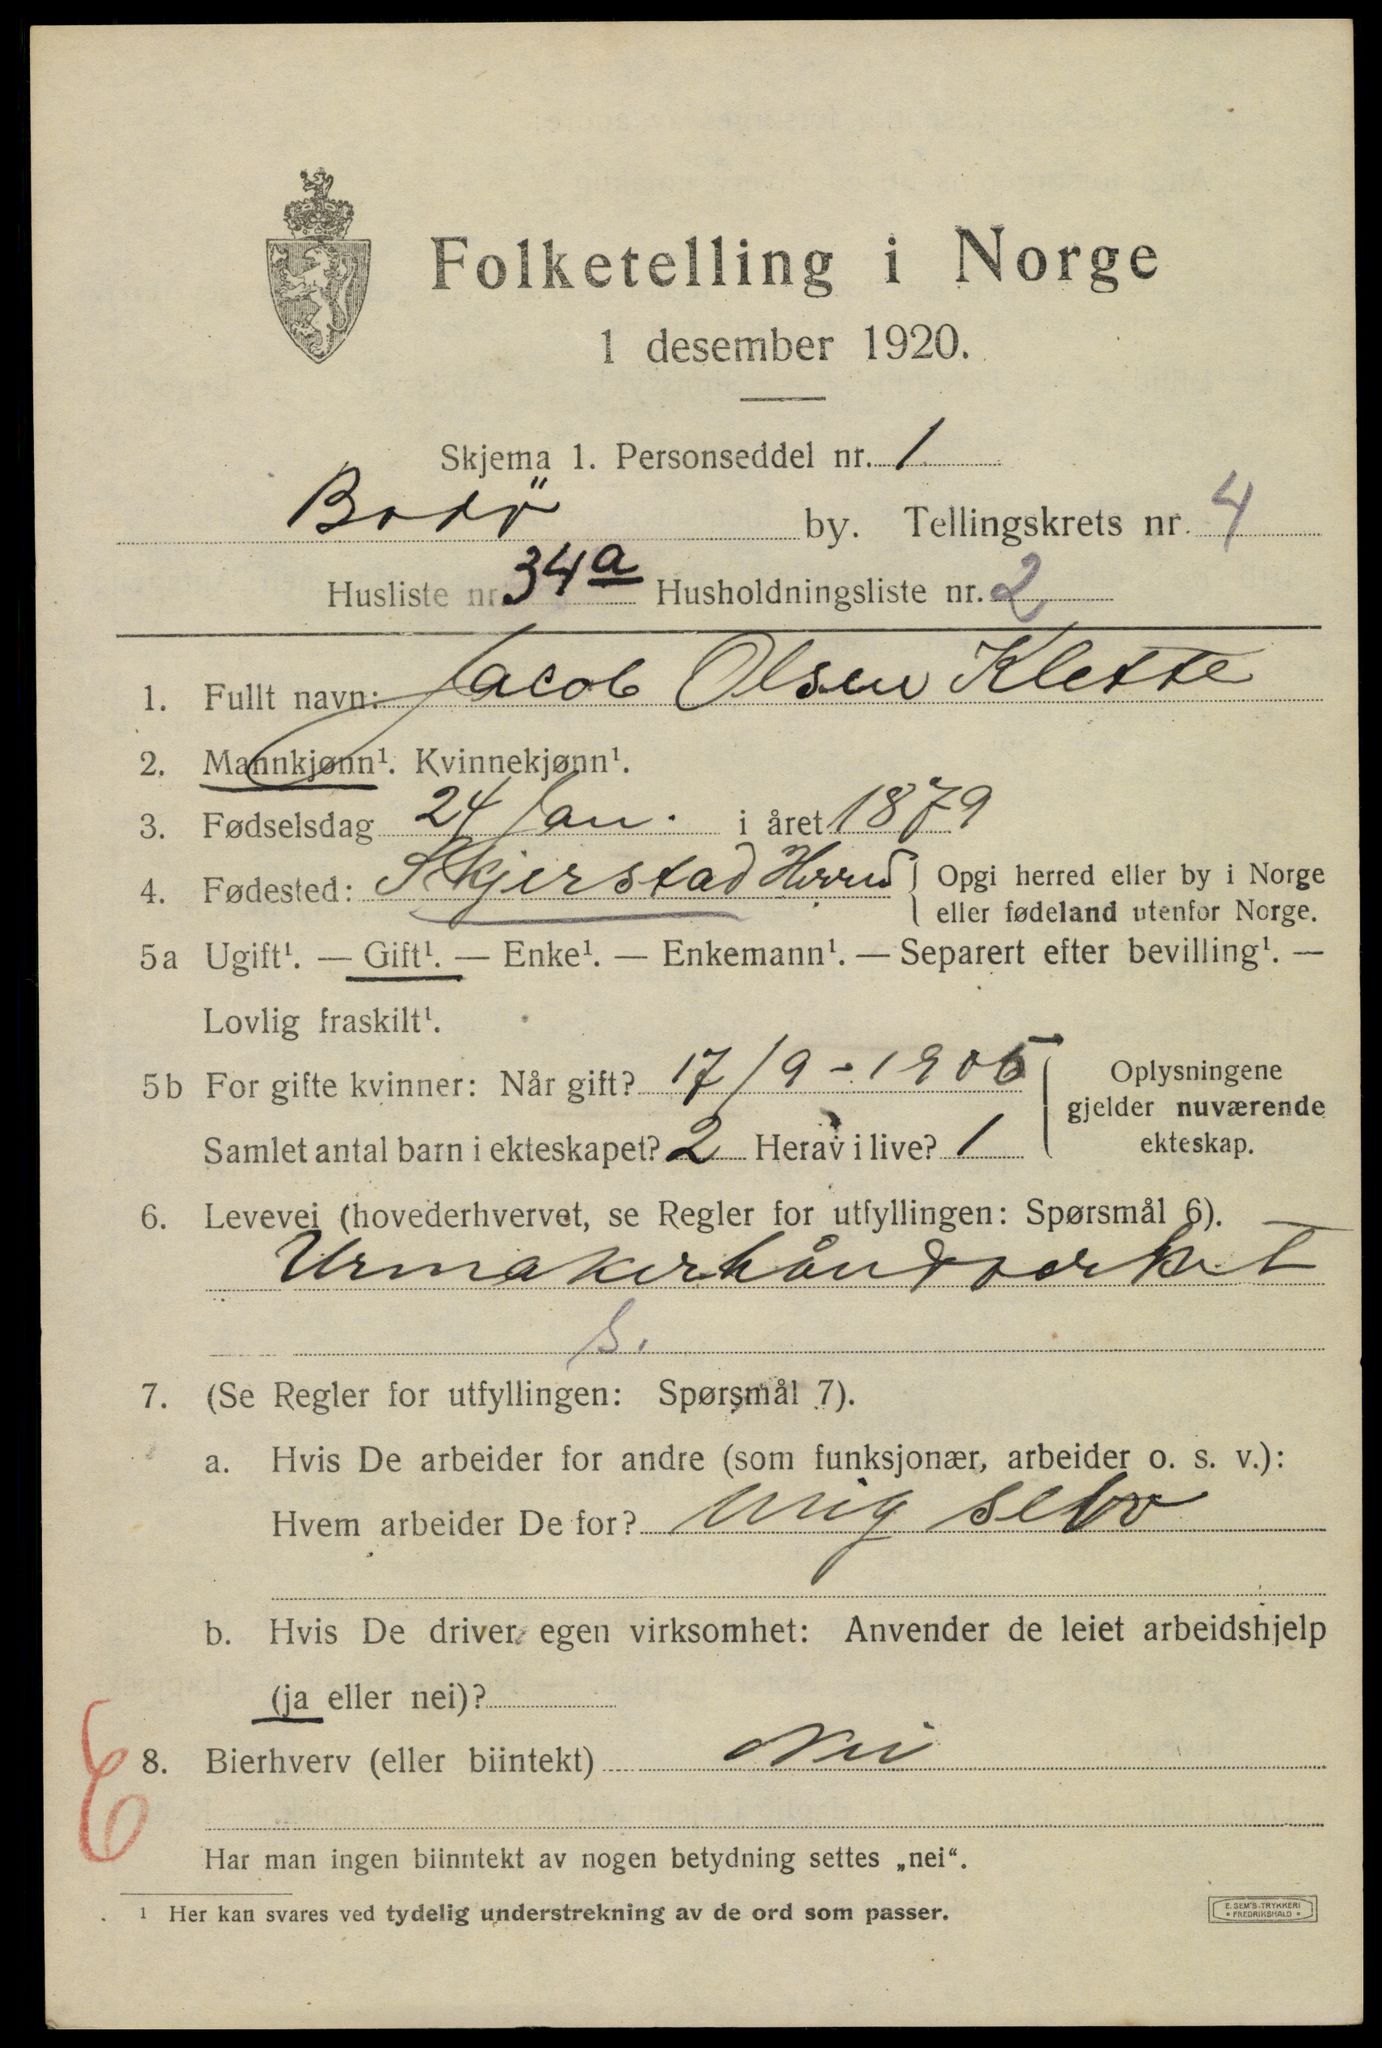 Folketelling i Norge
1 desember 1920.
Skjema 1. Personseddel nr. 1
Bodø by. Tellingskrets nr. 4
Husliste nr. 34a Husholdningsliste nr. 2
1. Fullt navn: Jacob Olsen Klette
2. Mannkjønn¹. Kvinnekjønn¹.
3. Fødselsdag 24 Jan. i året 1879
4. Fødested: Skjerstad Herred Opgi herred eller by i Norge
eller fødeland utenfor Norge.
5a Ugift¹. — Gift¹. — Enke¹. — Enkemann¹. — Separert efter bevilling¹. —
Lovlig fraskilt¹.
5b For gifte kvinner: Når gift? 17/9-1905 Oplysningene
gjelder nuværende
Samlet antal barn i ekteskapet? 2 Herav i live? 1 ekteskap.
6. Levevei (hovederhvervet, se Regler for utfyllingen: Spørsmål 6).
Urmakerhåndverket
s.
7. (Se Regler for utfyllingen: Spørsmål 7).
a. Hvis De arbeider for andre (som funksjonær, arbeider o. s. v.):
Hvem arbeider De for? Mig selv
b. Hvis De driver egen virksomhet: Anvender de leiet arbeidshjelp
(ja eller nei)?
8. Bierhverv (eller biintekt) Nei
Har man ingen biinntekt av nogen betydning settes „nei“.
¹ Her kan svares ved tydelig understrekning av de ord som passer.
E. SEM'S TRYKKERI
* FREDRIKSHALD *